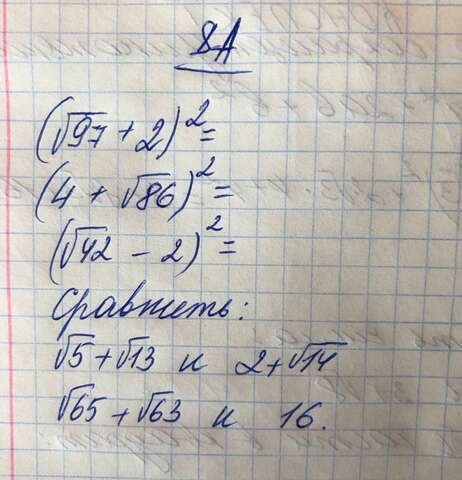 8А
(√97 + 2)² =
(4 + √86)² =
(√42 − 2)² =
Сравнить:
√5 + √13 и 2 + √14
√65 + √63 и 16.